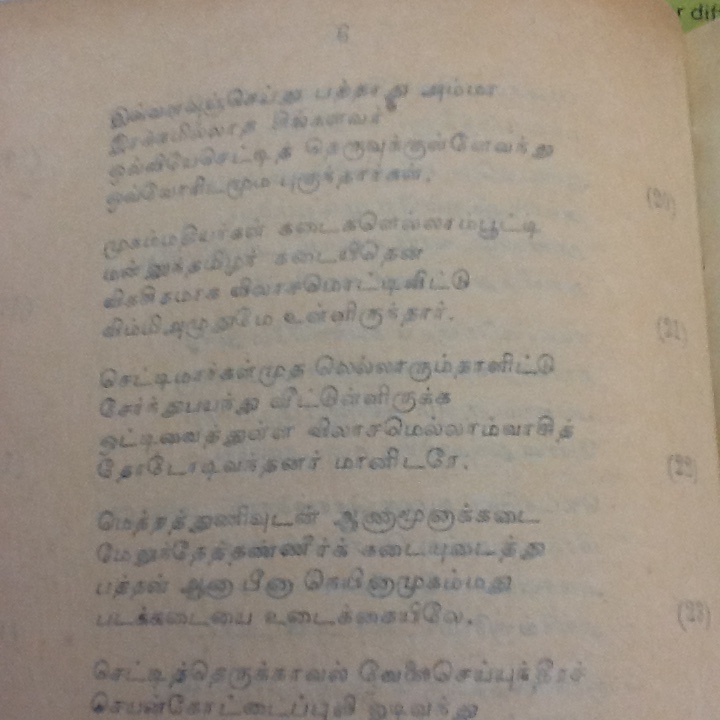 r dif
6
இவ்வளவுஞ்செய்து பத்தாது அம்மா
இரக்கமில்லாத சிங்களவர்
ஒவ்வியேசெட்டித் தெருவுக்குள்ளேவந்து
புகுந்தார்கள்.
(20)
முகம்மதியர்கள் கடைகளெல்லாம்பூட்டி
மன்னுந்தமிழர் கடையீதென்
விகசிதமாக விலாசமொட்டிவிட்டு
விம்மிஅழுதுமே உள்ளிருந்தார்.
(21)
செட்டிமார்கள்முத லெல்லாரும்தாளிட்டு
சேர்ந்துபயந்து வீட்டுள்ளிருக்க
ஒட்டிவைத்துள்ள விலாசமெல்லாம்வாசித்
தோடோடிவந்தனர் மானிடரே.
(22)
மெத்தத்துணிவுடன் ஆணாமூனாக்கடை
மேலுந்தேத்தண்ணீர்க் கடையுடைத்து
பத்தன் ஆனா பீனா செயினுமுகம்மது
படக்கடையை உடைக்கையிலே.
(23)
செட்டித்தெருக்காவல் வேலைசெய்யுந்தீரச்
செயன்கோட்டைப்புலி ஓடிவந்து